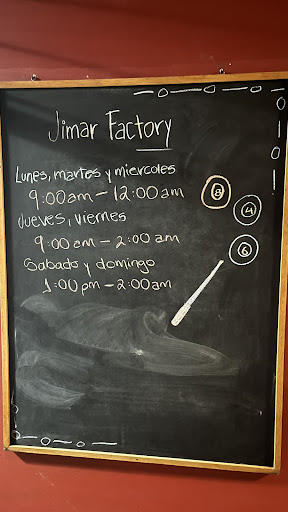 Jimar Factory
Lunes, martes y miercoles
9:00am - 12:00am
Jueves, viernes
9:00am - 2:00am
Sabado y domingo
1:00pm - 2:00am
8
4
6